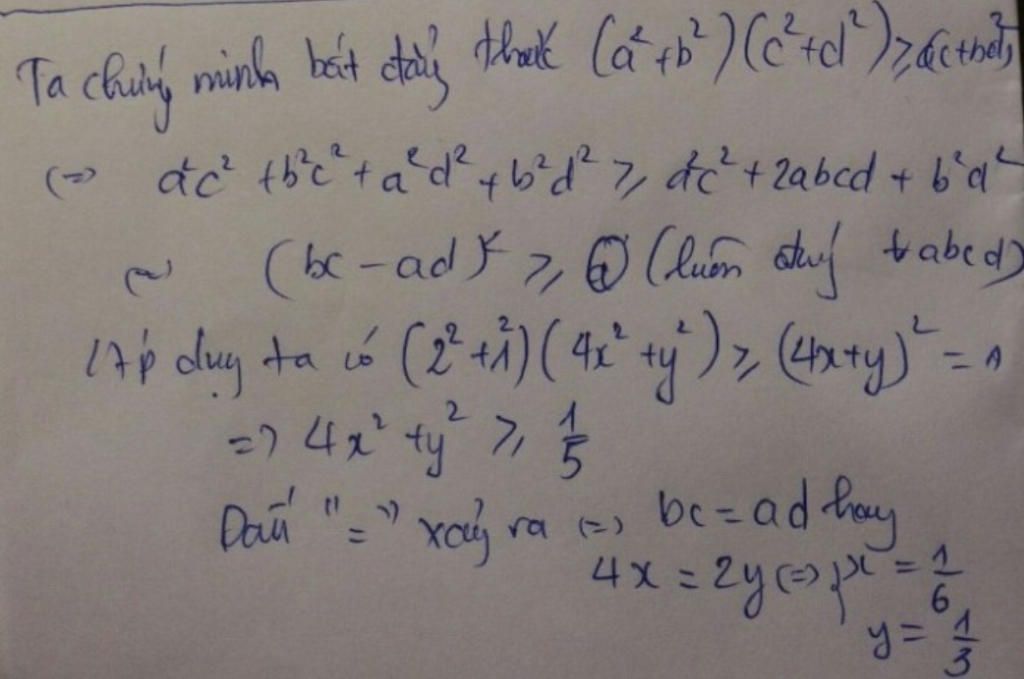 Ta chứng minh bất đẳng thức (a² + b²)(c² + d²) ≥ (ac + bd)²
(=) a²c² + b²c² + a²d² + b²d² ≥ a²c² + 2abcd + b²d²
(=) (bc - ad)² ≥ 0 (luôn đúng ∀ abcd)
Áp dụng ta có (2² + 1²)(4x² + y²) ≥ (4x + y)² = 1
=) 4x² + y² ≥ 1/5
Dấu "=" xảy ra (=) bc = ad hay
4x = 2y (=) { x = 1/6
y = 1/3